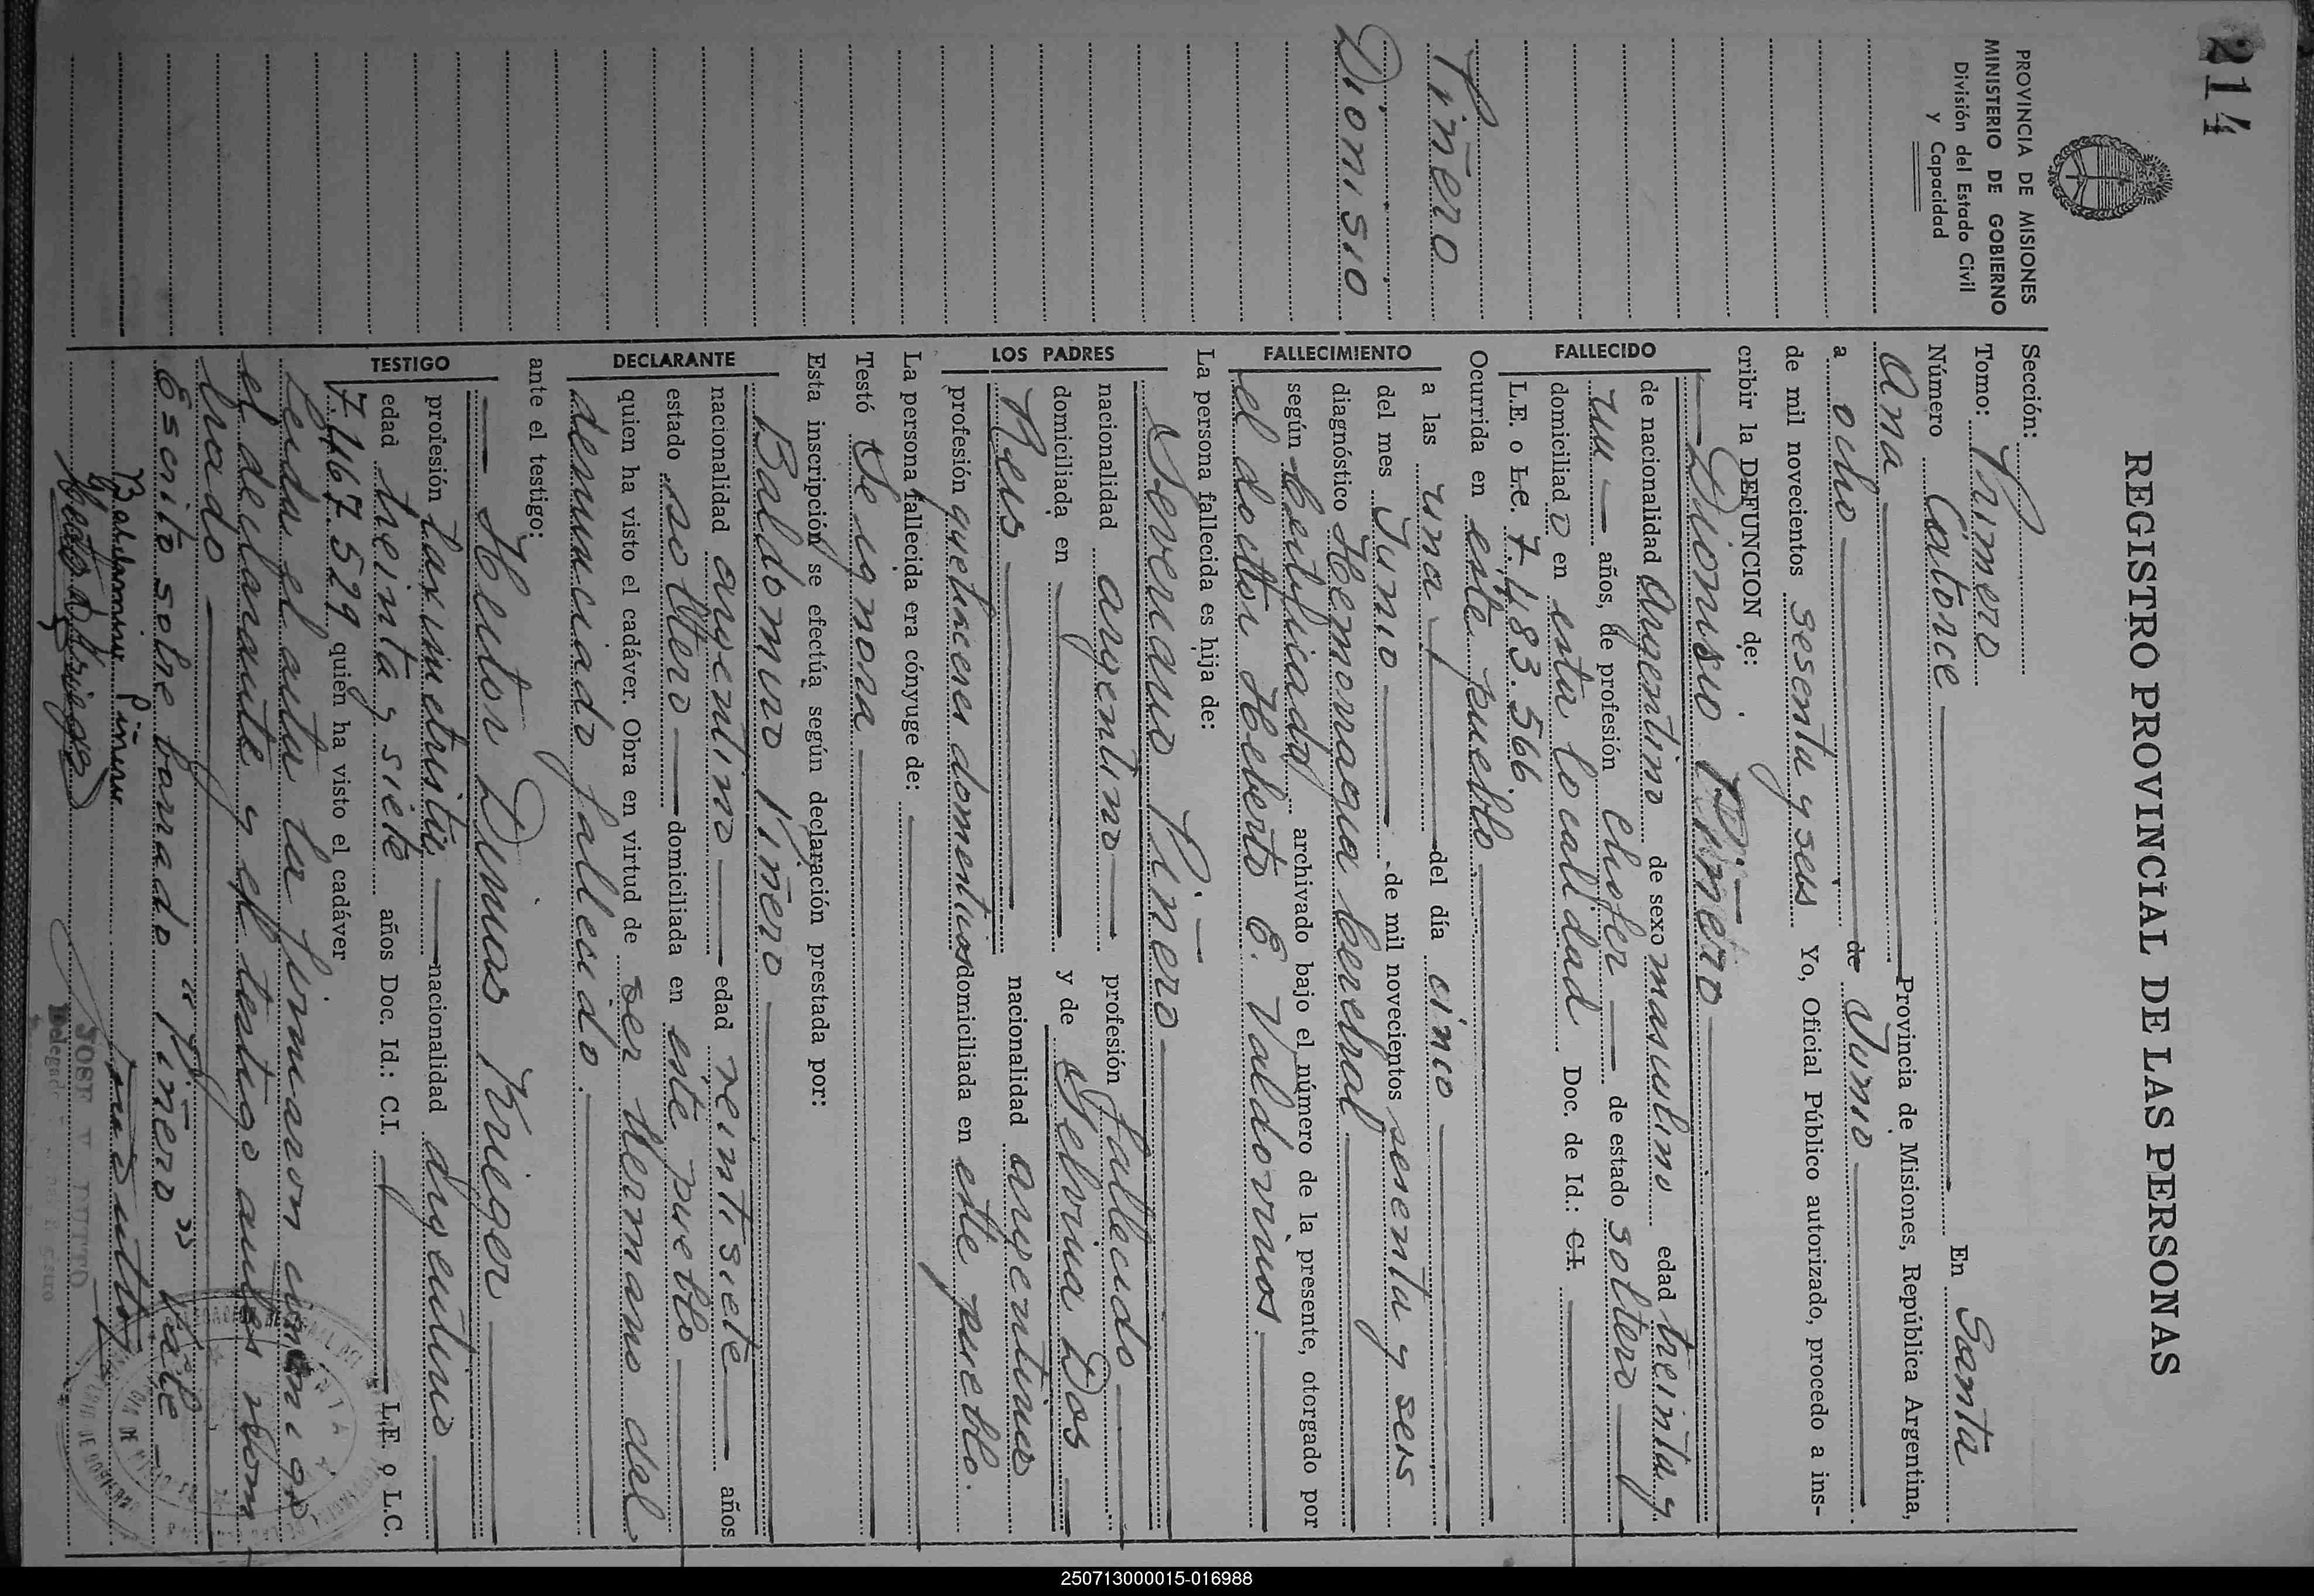 214
PROVINCIA DE MISIONES
MINISTERIO DE GOBIERNO
División del Estado Civil
y Capacidad
Piñero
Dionisio
REGISTRO PROVINCIAL DE LAS PERSONAS
Sección:
Tomo: Primero
Número Catorce En Santa
Ana Provincia de Misiones, República Argentina,
a ocho de Junio
de mil novecientos sesenta y seis Yo, Oficial Público autorizado, procedo a ins-
cribir la DEFUNCION de:
FALLECIDO
Dionisio Piñero
de nacionalidad Argentino de sexo masculino edad treinta y
un años, de profesión chofer de estado soltero
domiciliado en esta localidad Doc. de Id.: C.I.
L.E. o L.C. 7.483.566
FALLECIMIENTO
Ocurrida en este pueblo
a las una del día cinco
del mes Junio de mil novecientos sesenta y seis
diagnóstico Hemorragia cerebral
según certificado archivado bajo el número de la presente, otorgado por
el doctor Heberto E. Valdovinos.
La persona fallecida es hija de:
LOS PADRES
Severiano Piñero
nacionalidad argentino profesión fallecido
domiciliada en y de Selvina Dos
Reis nacionalidad argentina
profesión quehaceres domesticos domiciliada en este pueblo.
La persona fallecida era cónyuge de:
Testó Se ignora
Esta inscripción se efectúa según declaración prestada por:
DECLARANTE
Baldomiro Piñero
nacionalidad argentino edad veintisiete años
estado soltero domiciliada en este pueblo
quien ha visto el cadáver. Obra en virtud de ser hermano del
denunciado fallecido.
ante el testigo:
TESTIGO
Hector Dimas Krieger
profesión taximetrista nacionalidad argentino
edad treinta y siete años Doc. Id.: C.I. L.E. o L.C.
7.467.529 quien ha visto el cadáver
Leida el acta la firmaron conmigo
el declarante y el testigo antes nom
brado
Escrito sobre borrado "Piñero" Vale
Baldomiro Piñero
JOSE
250713000015-016988